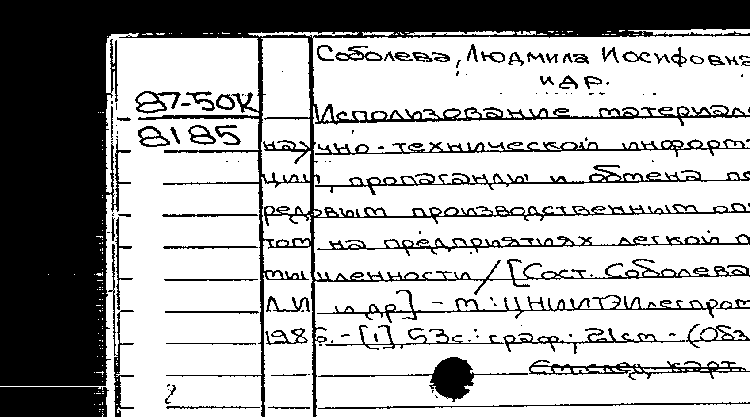 Соболева, Людмила Иосифовна
и др.
87-50К
8185
Использование материал
научно-технической информ
ции, пропаганды и обмена пе
редовым производственным оп
том на предприятиях легкой п
мышленности / [Сост. Соболева
Л.И. и др.] - М.: ЦНИИТЭИлегпром
1986. - [1], 53 с.: граф.; 21 см - (Обз
См. след. карт.